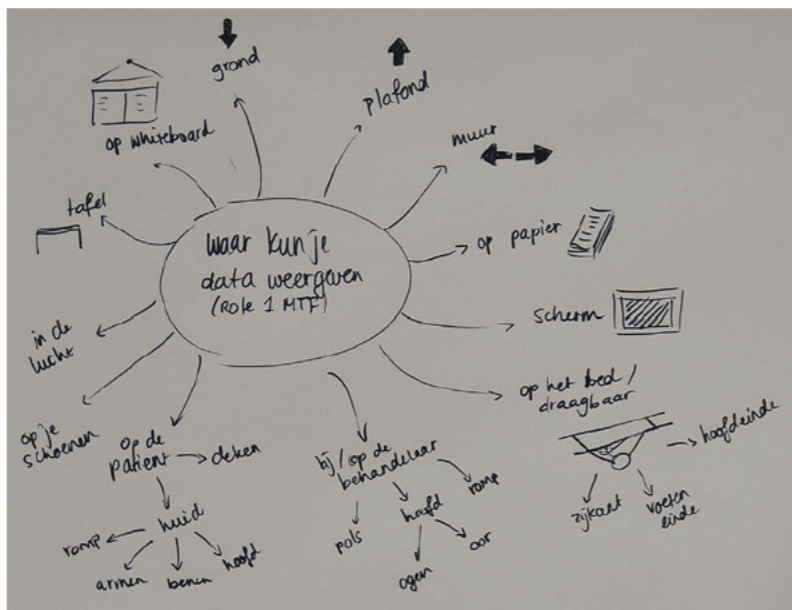 waar kun je
data weergeven
(Role 1 MTF)
grond
plafond
muur
op papier
scherm
op het bed /
draagbaar
hoofdeinde
voeten
einde
zijkant
bij/op de
behandelaar
romp
hoofd
oor
ogen
pols
op de
patient
deken
huid
hoofd
benen
armen
romp
op je
schoenen
in de
lucht
tafel
op whiteboard